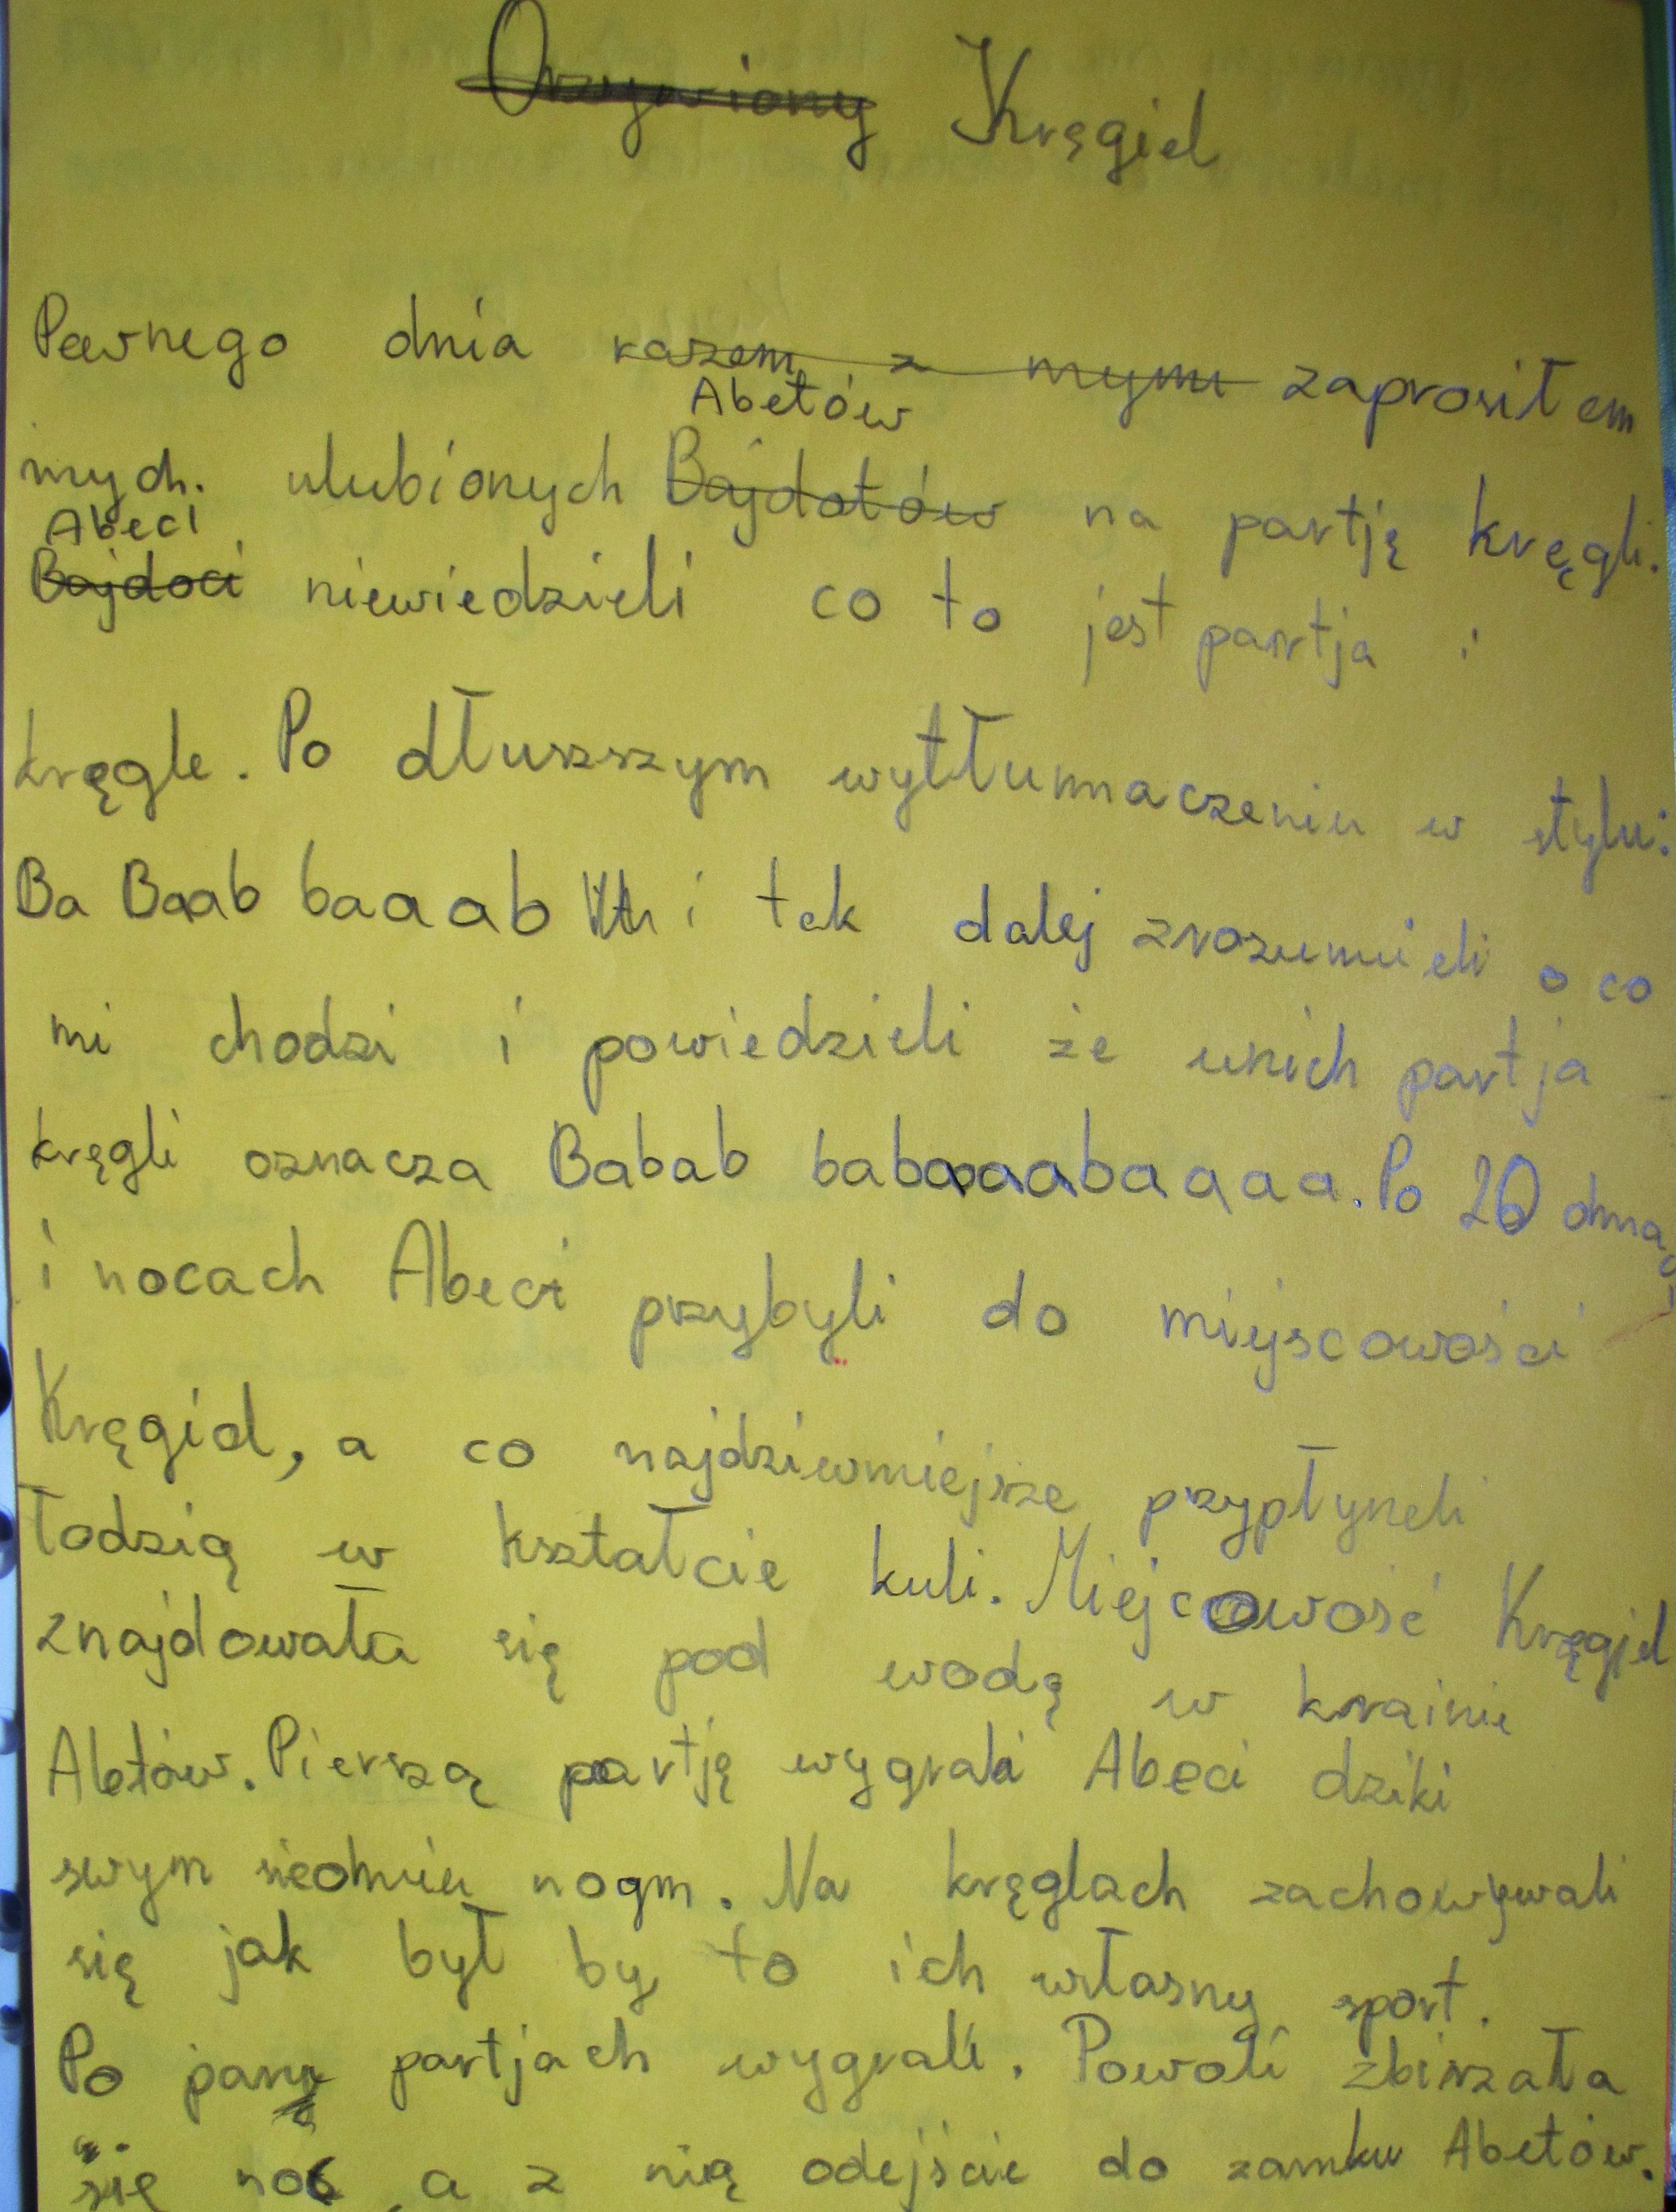 Kręgiel
Pewnego dnia razem z mymi zaprosiłem
Abetów
mych. ulubionych Bajdotów na partję kręgli.
Abeci
Bajdoci niewiedzieli co to jest partja i
kręgle. Po dłuszszym wytłumaczeniu w stylu:
Ba Baab baaab i tak dalej zrozumieli o co
mi chodzi i powiedzieli że unich partja
kręgli oznacza Babab babaaaabaaaa. Po 20
i nocach Abeci przybyli do miejscowości
Kręgiel, a co najdziwniejsze przypłyneli
łodzią w kształcie kuli. Miejcowość Kręgiel
znajdowała się pod wodą w krainie
Abetów. Pierszą partję wygrali Abeci dziki
swym siedmiu nogm. Na kręglach zachowywali
się jak był by to ich własny sport.
Po partjach wygrali. Powoli zbirzała
się noc a z nią odejście do zamku Abetów.